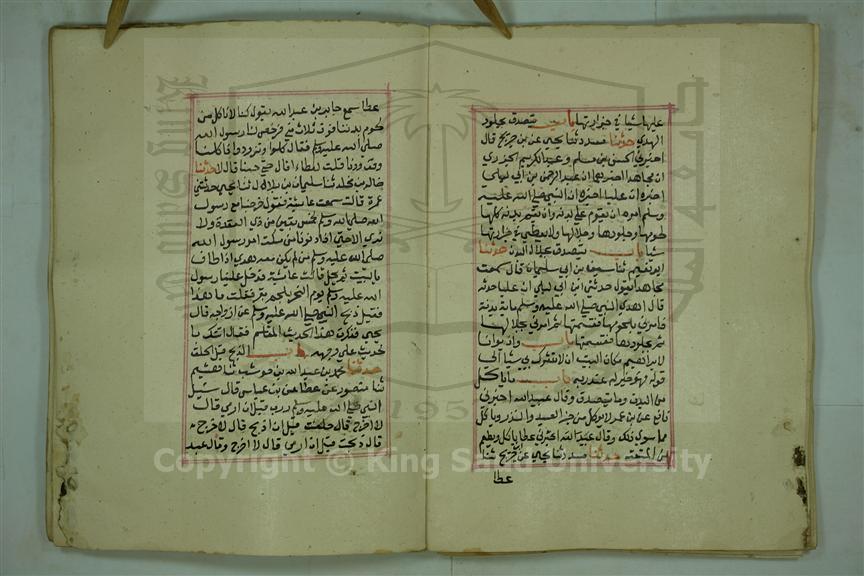 عليها شيا في جزارتها باب يتصدق بجلود
الهدي حدثنا مسدد ثنا يحيى عن بن جريج قال
اخبرني الحسن بن مسلم وعبد الكريم الجزري
ان مجاهدا اخبرهما ان عبد الرحمن بن ابي ليلى
اخبره ان عليا اخبره ان النبي صلى الله عليه
وسلم امره ان يقوم على بدنه وان يقسم بدنه كلها
لحومها وجلودها وجلالها ولا يعطي في جزارتها
شيا باب يتصدق بجلال البدن حدثنا
ابو نعيم ثنا سيف بن ابي سليمان قال سمعت
مجاهدا يقول حدثني ابن ابي ليلى ان عليا حدثه
قال اهدى النبي صلى الله عليه وسلم ماية بدنة
فامرني بلحومها فقسمتها ثم امرني بجلالها
ثم بجلودها فقسمتها باب واذ بوانا
لابراهيم مكان البيت ان لا تشرك بي شيا الى
قوله فهو خير له عند ربه باب ما ياكل
من البدن وما يتصدق وقال عبيد الله اخبرني
نافع عن بن عمر لا يوكل من جزا الصيد والنذر ويوكل
مما سوى ذلك وقال عطا ياكل ويطعم
من المتعة حدثنا مسدد ثنا يحيى عن بن جريج ثنا
عطا
عطا سمع جابر بن عبد الله يقول كنا لا ناكل من
لحوم بدننا فوق ثلاث منى فرخص لنا رسول الله
صلى الله عليه وسلم فقال كلوا وتزودوا فاكلنا
وتزودنا قلت لعطاء اقال حتى جينا قال لا حدثنا
خالد بن مخلد ثنا سليمان بن بلال ثنا يحيى حدثتني
عمرة قالت سمعت عايشة تقول خرجنا مع رسول
الله صلى الله عليه وسلم لخمس بقين من ذي القعدة ولا
نرى الا الحج اذا دنونا من مكة امر رسول الله
صلى الله عليه وسلم من لم يكن معه هدي اذا طاف
بالبيت ثم يحل قالت عايشة فدخل علينا رسول
الله عليه وسلم يوم النحر بلحم بقر فقلت ما هذا
فقيل ذبح النبي صلى الله عليه وسلم عن ازواجه قال
يحيى فذكرت هذا الحديث للقاسم فقال اتتك با
لحديث على وجهه باب الذبح قبل الحلق
حدثنا محمد بن عبد الله بن حوشب ثنا هشيم
ثنا منصور عن عطا عن بن عباس قال سئيل
النبي صلى الله عليه وسلم قبل ان ارمي قال
لا حرج قال حلقت قبل ان اذبح قال لا حرج
قال ذبحت قبل ان ارمي قال لا حرج وقال عبد
Copyright © King Saud University
195